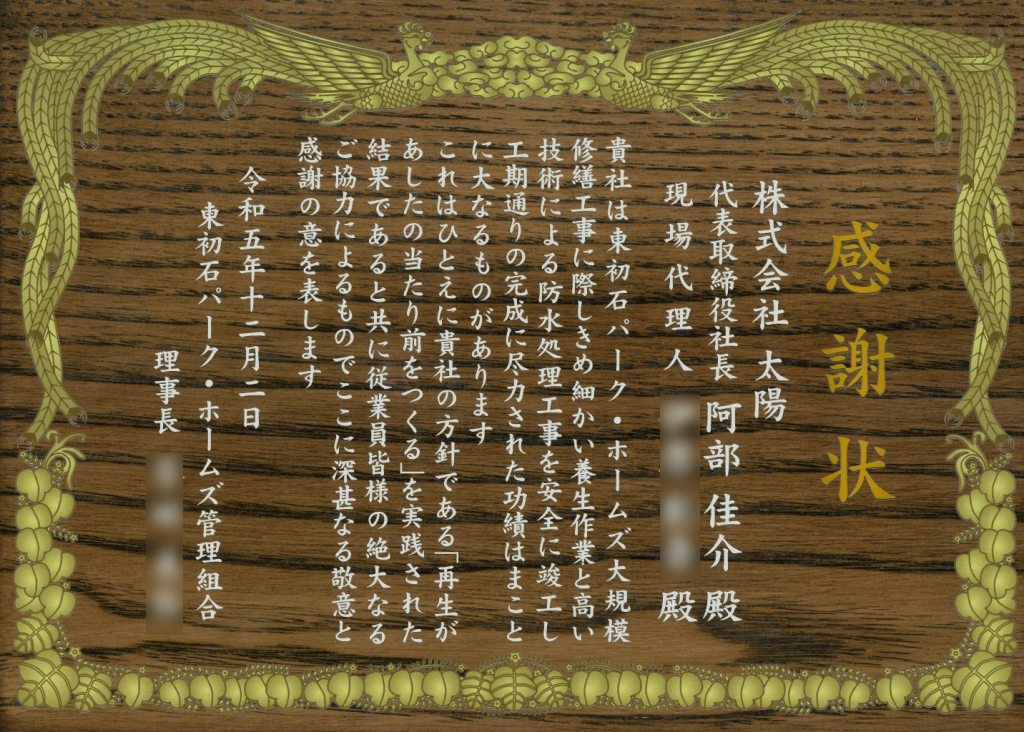 感謝状
株式会社 太陽
代表取締役社長 阿部 佳介 殿
現場代理人 殿
貴社は東初石パーク・ホームズ大規模
修繕工事に際しきめ細かい養生作業と高い
技術による防水処理工事を安全に竣工し
工期通りの完成に尽力された功績はまこと
に大なるものがあります
これはひとえに貴社の方針である「再生が
あしたの当たり前をつくる」を実践された
結果であると共に従業員皆様の絶大なる
ご協力によるものでここに深甚なる敬意と
感謝の意を表します
令和五年十二月二日
東初石パーク・ホームズ管理組合
理事長